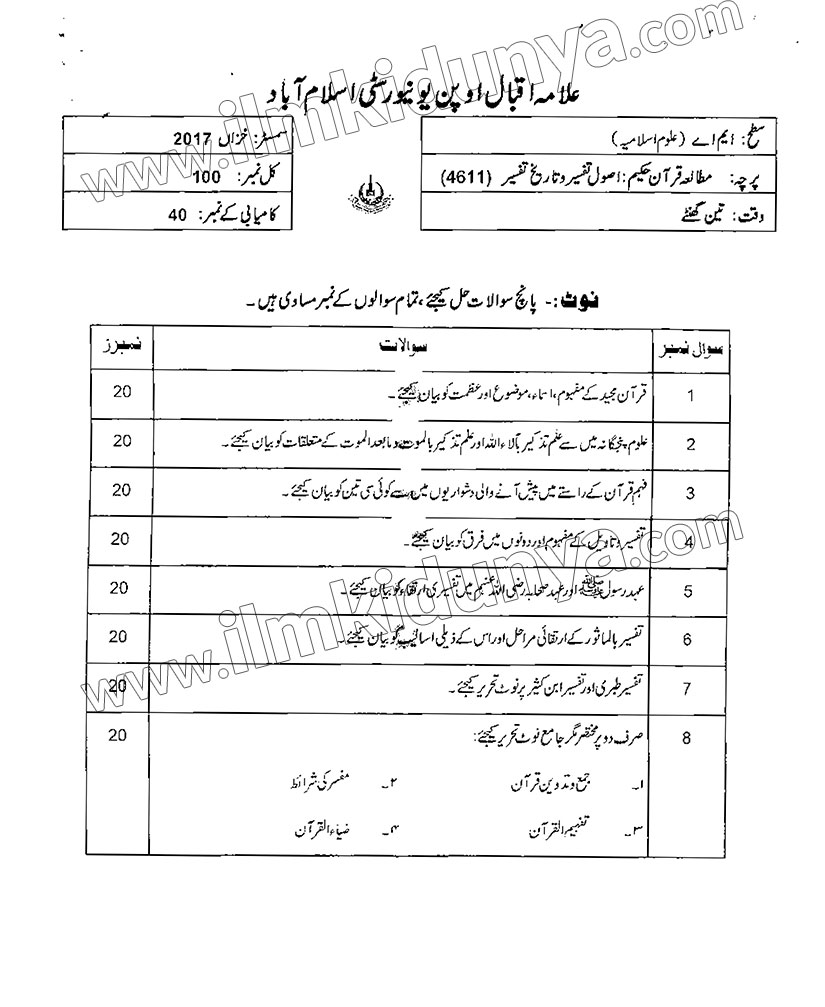 علامہ اقبال اوپن یونیورسٹی اسلام آباد
سطح: ایم اے (علوم اسلامیہ)
سمسٹر: خزاں 2017
پرچہ: مطالعہ قرآن حکیم: اصول تفسیر و تاریخ تفسیر (4611)
کل نمبر: 100
وقت: تین گھنٹے
کامیابی کے نمبر: 40
نوٹ:- پانچ سوالات حل کیجئے، تمام سوالوں کے نمبر مساوی ہیں۔
سوال نمبر سوالات نمبرز
1 قرآن مجید کے مفہوم، اسماء، موضوع اور عظمت کو بیان کیجئے۔ 20
2 علوم پنجگانہ میں سے علم تذکیر بآلاء اللہ اور علم تذکیر بالموت و ما بعد الموت کے متعلقات کو بیان کیجئے۔ 20
3 فہم قرآن کے راستے میں پیش آنے والی دشواریوں میں سے کوئی سی تین کو بیان کیجئے۔ 20
4 تفسیر و تاویل کے مفہوم اور دونوں میں فرق کو بیان کیجئے۔ 20
5 عہد رسول ﷺ اور عہد صحابہ رضی اللہ عنہم میں تفسیری ارتقاء کو بیان کیجئے۔ 20
6 تفسیر بالماثور کے ارتقائی مراحل اور اس کے ذیلی اسالیب کو بیان کیجئے۔ 20
7 تفسیر طبری اور تفسیر ابن کثیر پر نوٹ تحریر کیجئے۔ 20
8 صرف دو پر مختصر مگر جامع نوٹ تحریر کیجئے: 20
۱۔ جمع و تدوین قرآن ۲۔ مفسر کی شرائط
۳۔ تفہیم القرآن ۴۔ ضیاء القرآن
www.ilmkidunya.com
www.ilmkidunya.com